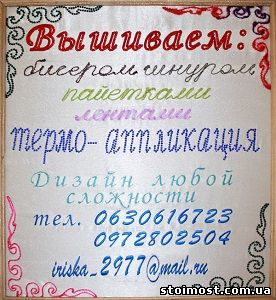 Вышиваем:
бисером, шнуром
пайетками
лентами
термо-аппликация
Дизайн любой
сложности
тел. 0630616723
0972802504
iriska_2977@mail.ru
stoimost.com.ua